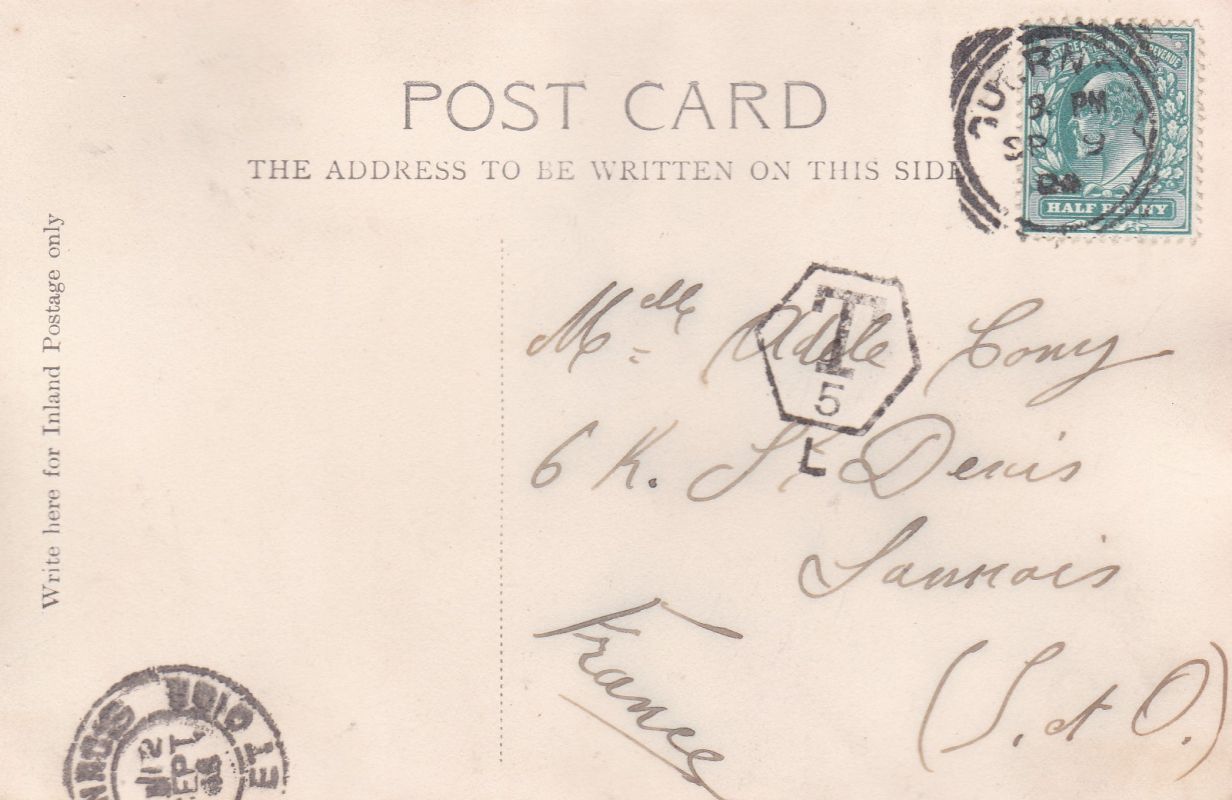 POST CARD
THE ADDRESS TO BE WRITTEN ON THIS SIDE
POSTAGE REVENUE
9 PM
9
HALF PENNY
Write here for Inland Postage only
T
5
L
Melle Adèle Cony
6 R. St Denis
Sannois
(S. et O.)
France
12
SEPT
SEINE ET OISE